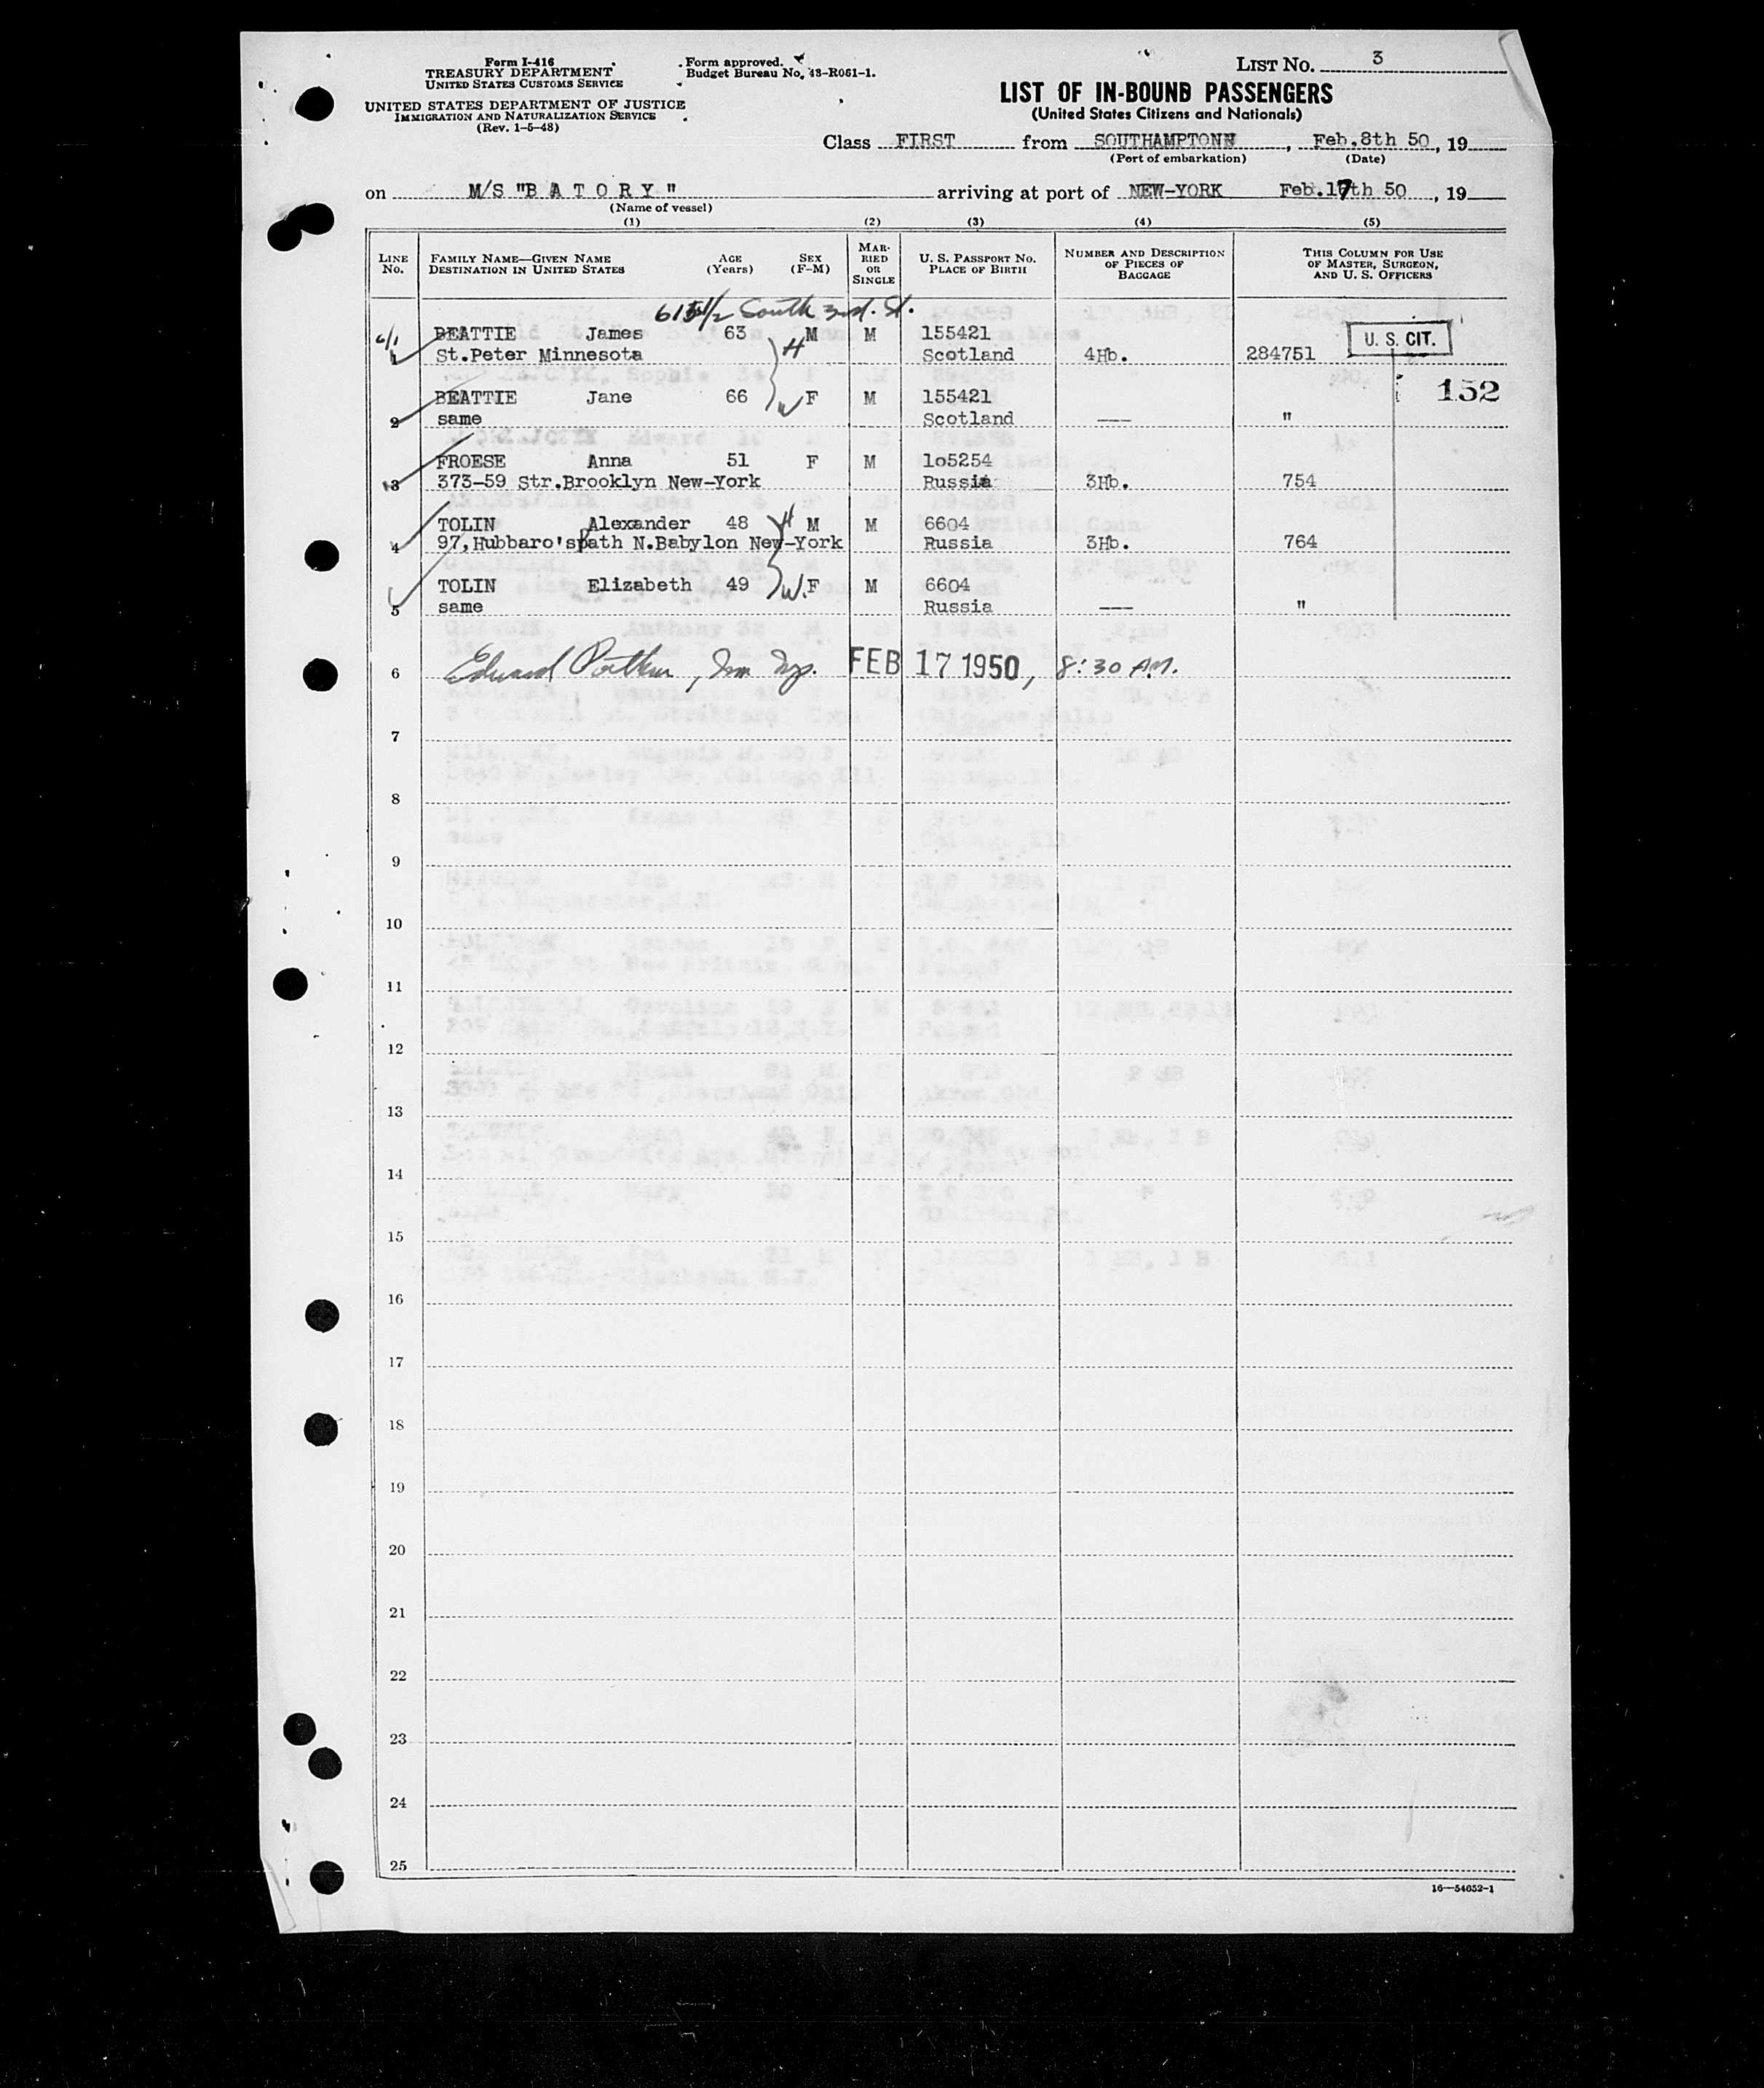 Form I-416
TREASURY DEPARTMENT
UNITED STATES CUSTOMS SERVICE
Form approved.
Budget Bureau No. 43-R061-1.
UNITED STATES DEPARTMENT OF JUSTICE
IMMIGRATION AND NATURALIZATION SERVICE
(Rev. 1-5-48)
LIST No. 3
LIST OF IN-BOUND PASSENGERS
(United States Citizens and Nationals)
Class FIRST from SOUTHAMPTON , Feb.8th 50, 19
(Port of embarkation) (Date)
on M/S "B A T O R Y" arriving at port of NEW-YORK Feb.17th 50 , 19
(Name of vessel)
(1) (2) (3) (4) (5)
LINE No. FAMILY NAME—GIVEN NAME DESTINATION IN UNITED STATES AGE (Years) SEX (F-M) MARRIED OR SINGLE U. S. PASSPORT No. PLACE OF BIRTH NUMBER AND DESCRIPTION OF PIECES OF BAGGAGE THIS COLUMN FOR USE OF MASTER, SURGEON, AND U. S. OFFICERS
South 3rd. St.
BEATTIE James 63 M M 155421 U. S. CIT.
1 St.Peter Minnesota H Scotland 4Hb. 284751
152
BEATTIE Jane 66 W F M 155421
2 same Scotland --- "
FROESE Anna 51 F M 1o5254
3 373-59 Str.Brooklyn New-York Russia 3Hb. 754
TOLIN Alexander 48 H M M 6604
4 97,Hubbaro's Path N.Babylon New-York Russia 3Hb. 764
TOLIN Elizabeth 49 W. F M 6604
5 same Russia --- "
6 Edward FEB 17 1950, 8:30 A.M.
7
8
9
10
11
12
13
14
15
16
17
18
19
20
21
22
23
24
25
16—54652-1